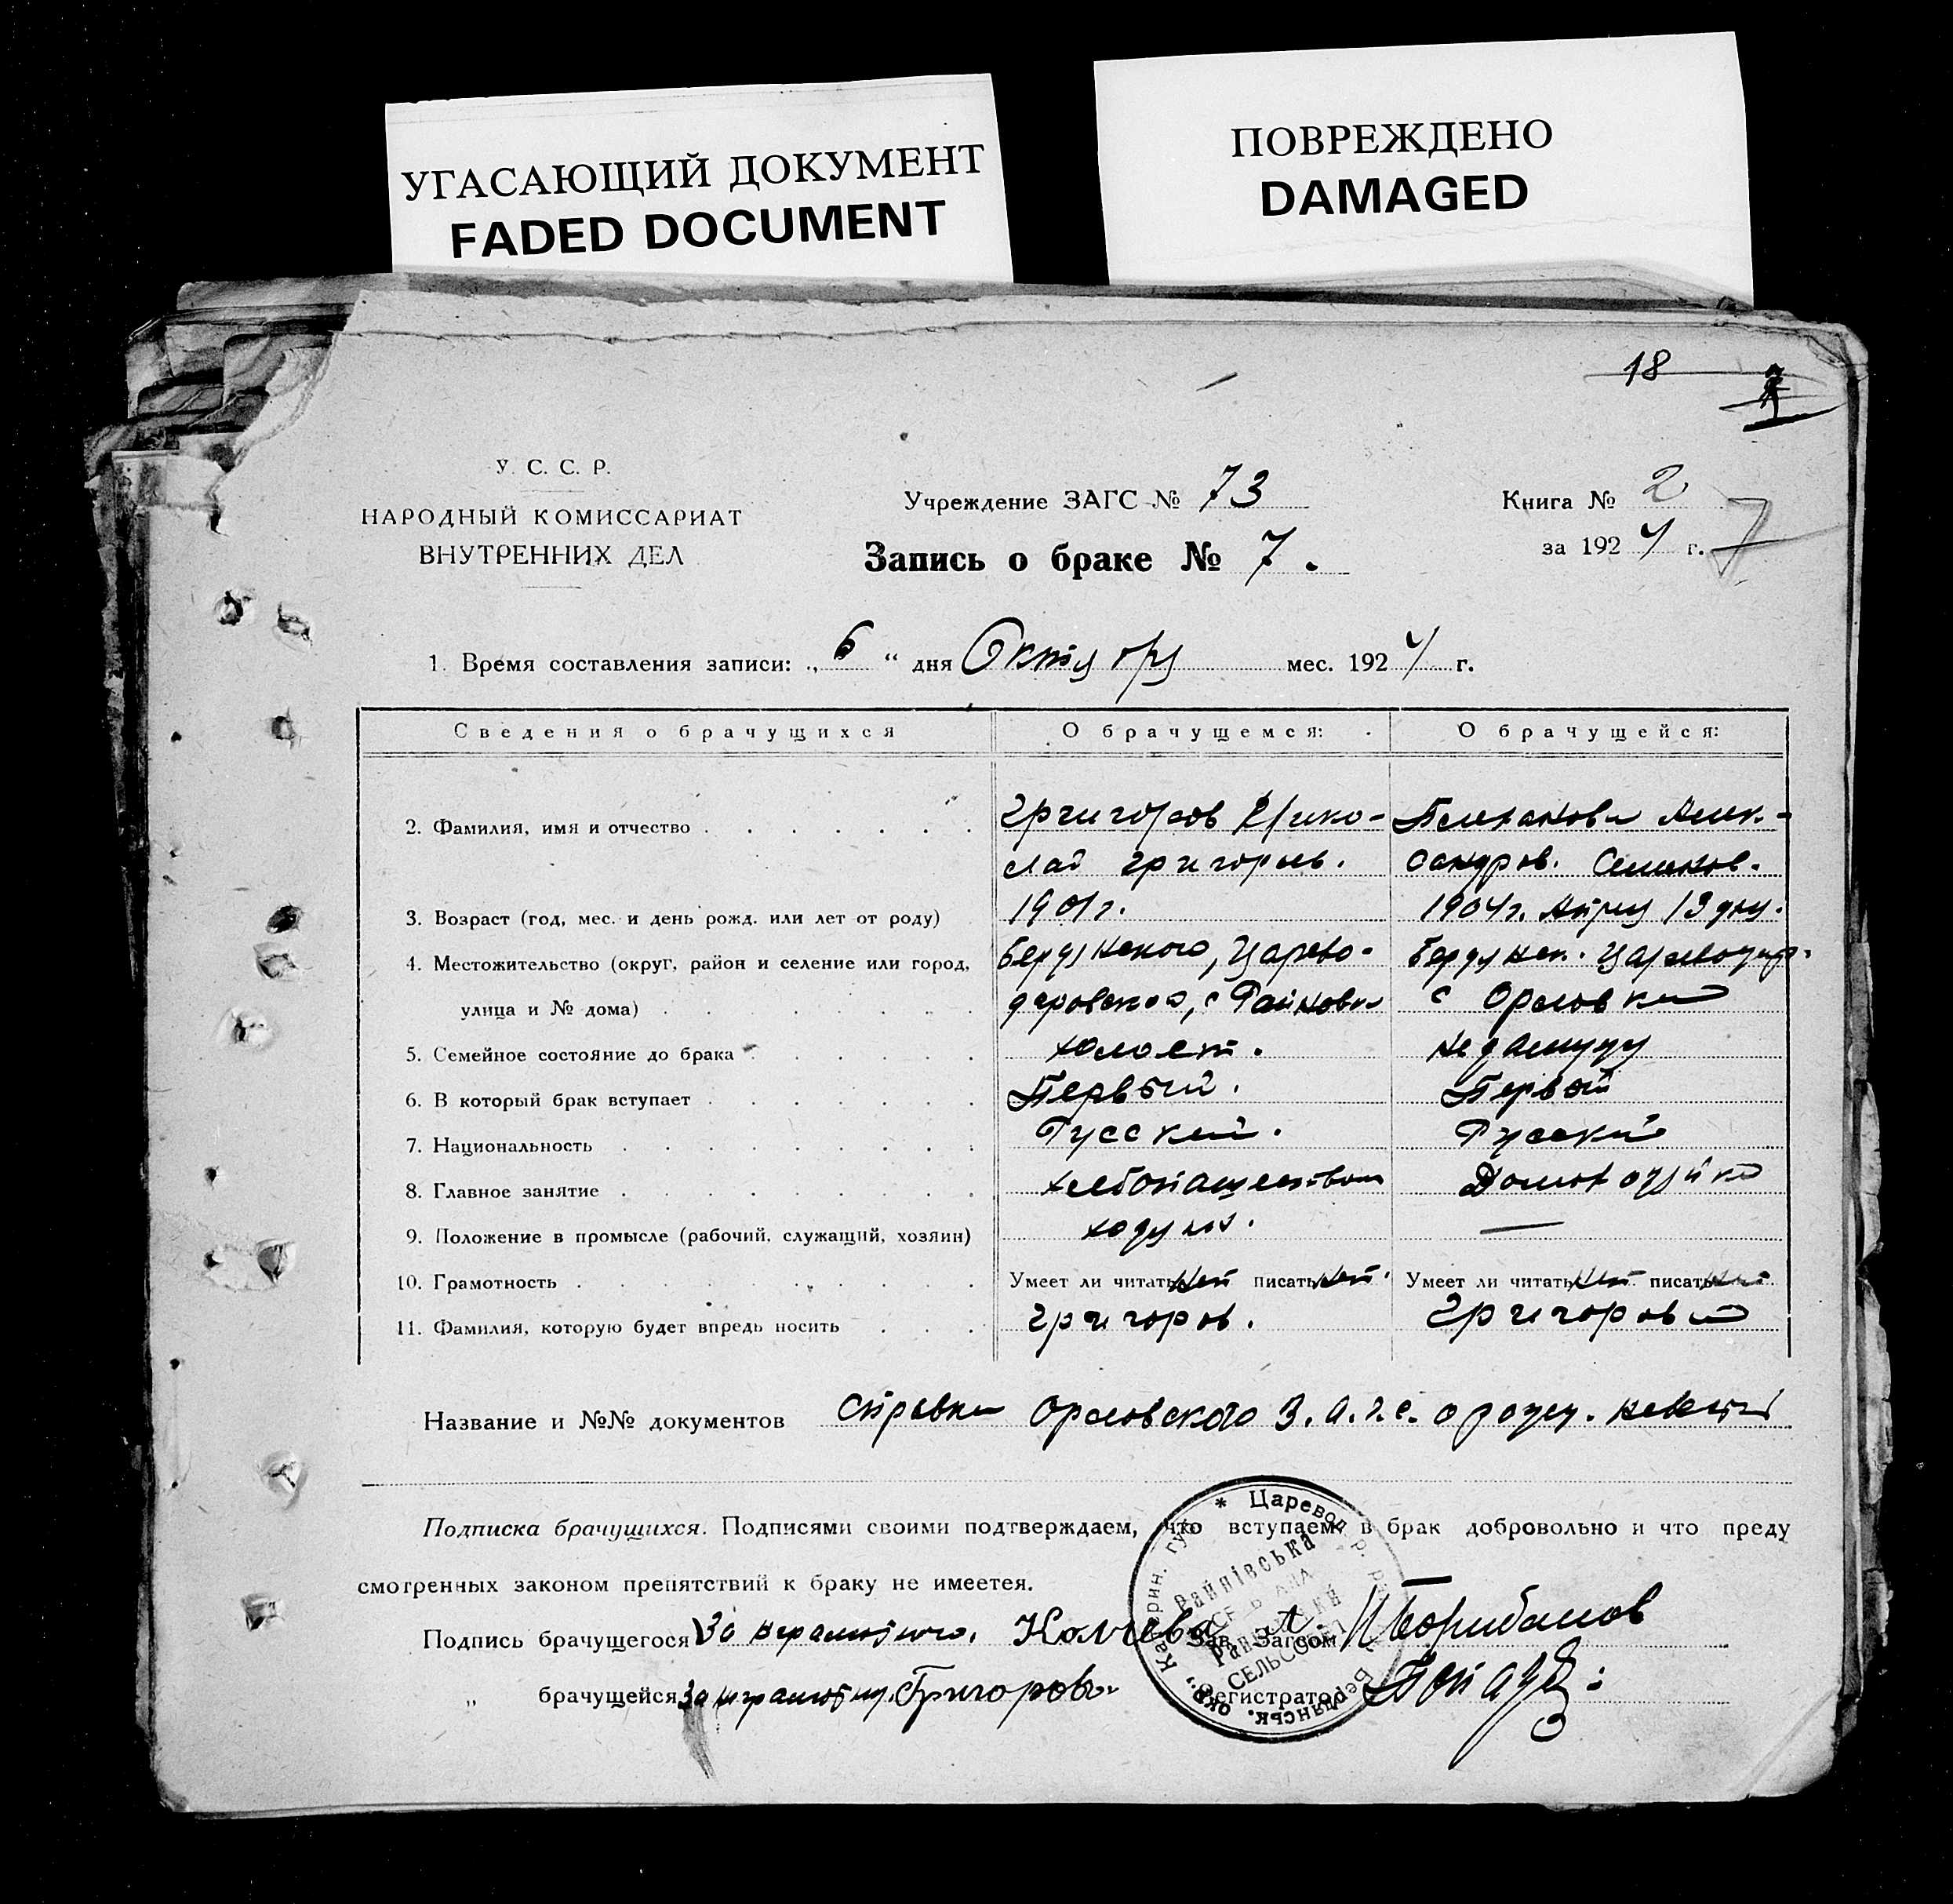 УГАСАЮЩИЙ ДОКУМЕНТ
FADED DOCUMENT
ПОВРЕЖДЕНО
DAMAGED
18
У. С. С. Р.
НАРОДНЫЙ КОМИССАРИАТ
ВНУТРЕННИХ ДЕЛ
Учреждение ЗАГС № 73
Запись о браке № 7.
Книга № 2
за 1924 г.
7
1. Время составления записи: „6“ дня Октября мес. 1924 г.
Сведения о брачущихся О брачущемся: О брачущейся:
2. Фамилия, имя и отчество Григоров Алек-
Григорьев. Семенов.
3. Возраст (год, мес. и день рожд. или лет от роду) 1901 г. 1904 г. 13 дня.
4. Местожительство (округ, район и селение или город, Бердянского, Царево- Бердянск.
улица и № дома) даровского, с Райновка с Орловка
5. Семейное состояние до брака холост.
6. В который брак вступает Первый. Первый
7. Национальность Русский. Русский
8. Главное занятие хлебопашеством Домохозяйка
9. Положение в промысле (рабочий, служащий, хозяин) хозяин. —
10. Грамотность Умеет ли читать нет писать нет. Умеет ли читать нет писать нет
11. Фамилия, которую будет впредь носить Григоров. Григорова
Название и №№ документов справка Орловского З.а.г.с. о
Подписка брачущихся. Подписями своими подтверждаем, что вступаем в брак добровольно и что преду
смотренных законом препятствий к браку не имеетея.
Подпись брачущегося За неграмотного. Зав. Загсом
„ брачущейся За неграмотную. Григорова Регистратор
* Царевод. р. Бердянськ. окр., Катерин. губ.
Райнівська
СЕЛЬСОВЕТ